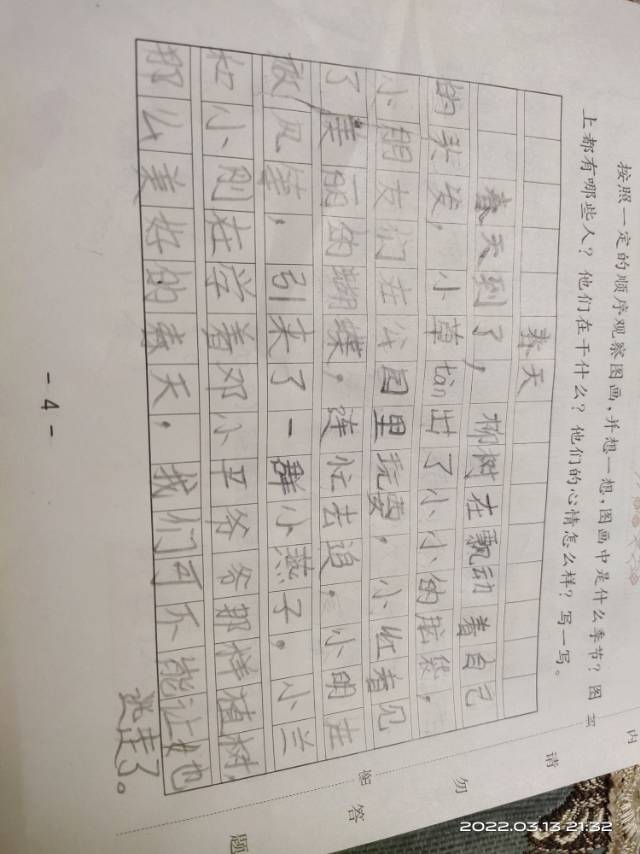 按照一定的顺序观察图画,并想一想,图画中是什么季节?图
上都有哪些人?他们在干什么?他们的心情怎么样?写一写。
春天
春天到了,柳树在飘动着自己
的头发,小草钻出了小小的脑袋,
小朋友们在公园里玩耍,小红看见
了美丽的蝴蝶,连忙去追。小明在
放风筝,引来了一群小燕子。小兰
和小刚在学着邓小平爷爷那样植树,
那么美好的春天,我们可不能让她
逃走了。
- 4 -
内
请
勿
答
题
2022.03.13 21:32